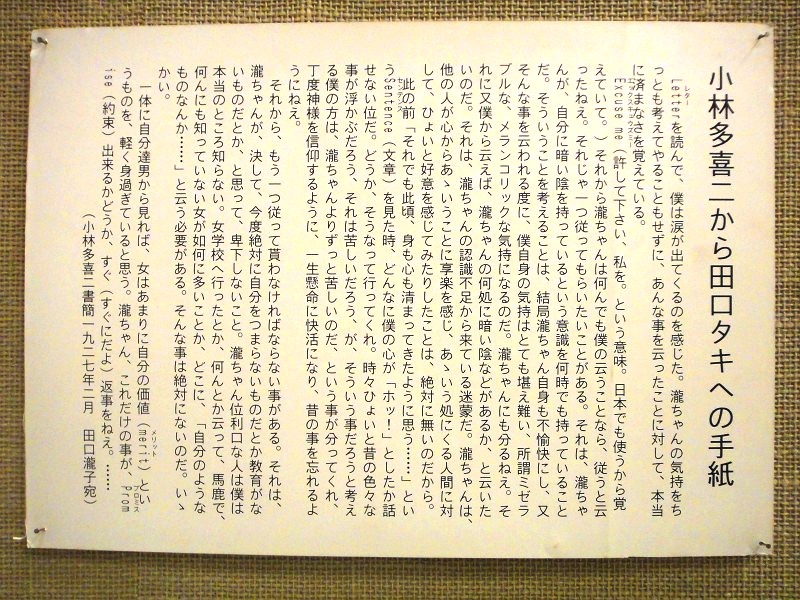 小林多喜二から田口タキへの手紙
Letterを読んで、僕は涙が出てくるのを感じた。瀧ちゃんの気持をち
っとも考えてやることもせずに、あんな事を云ったことに対して、本当
に済まなさを覚えている。
Excuse me（許して下さい、私を。という意味。日本でも使うから覚
えていて。）それから瀧ちゃんは何んでも僕の云うことなら、従うと云
ったねえ。それじゃ一つ従ってもらいたいことがある。それは、瀧ちゃ
んが、自分に暗い陰を持っているという意識を何時でも持っていること
だ。そういうことを考えることは、結局瀧ちゃん自身も不愉快にし、又
そんな事を云われる度に、僕自身の気持はとても堪え難い、所謂ミゼラ
ブルな、メランコリックな気持になるのだ。瀧ちゃんにも分るねえ。そ
れに又僕から云えば、瀧ちゃんの何処に暗い陰などがあるか、と云いた
いのだ。それは、瀧ちゃんの認識不足から来ている迷蒙だ。瀧ちゃんは、
他の人が心からあゝいうことに享楽を感じ、あゝいう処にくる人間に対
して、ひょいと好意を感じてみたりしたことは、絶対に無いのだから。
此の前「それでも此頃、身も心も清まってきたように思う……」とい
うSentence（文章）を見た時、どんなに僕の心が「ホッ！」としたか話
せない位だ。どうか、そうなって行ってくれ。時々ひょいと昔の色々な
事が浮かぶだろう、それは苦しいだろう、が そういう事だろうと考え
る僕の方は、瀧ちゃんよりずっと苦しいのだ、という事が分ってくれ、
丁度神様を信仰するように、一生懸命に快活になり、昔の事を忘れるよ
うにねえ。
それから、もう一つ従って貰わなければならない事がある。それは、
瀧ちゃんが、決して、今度絶対に自分をつまらないものだとか教育がな
いものだとか、と思って、卑下しないこと。瀧ちゃん位利口な人は僕は
本当のところ知らない。女学校へ行ったとか、何んとか云って、馬鹿で、
何んにも知っていない女が如何に多いことか、どこに、「自分のような
ものなんか……」と云う必要がある。そんな事は絶対にないのだ。いゝ
かい。
一体に自分達男から見れば、女はあまりに自分の価値（merit）とい
うものを、軽く身過ぎていると思う。瀧ちゃん、これだけの事が、Prom
ise（約束）出来るかどうか、すぐ（すぐにだよ）返事をねえ。……
（小林多喜二書簡一九二七年二月 田口瀧子宛）
レター
エックスキューズミー
センテンス
メリット
プロミス